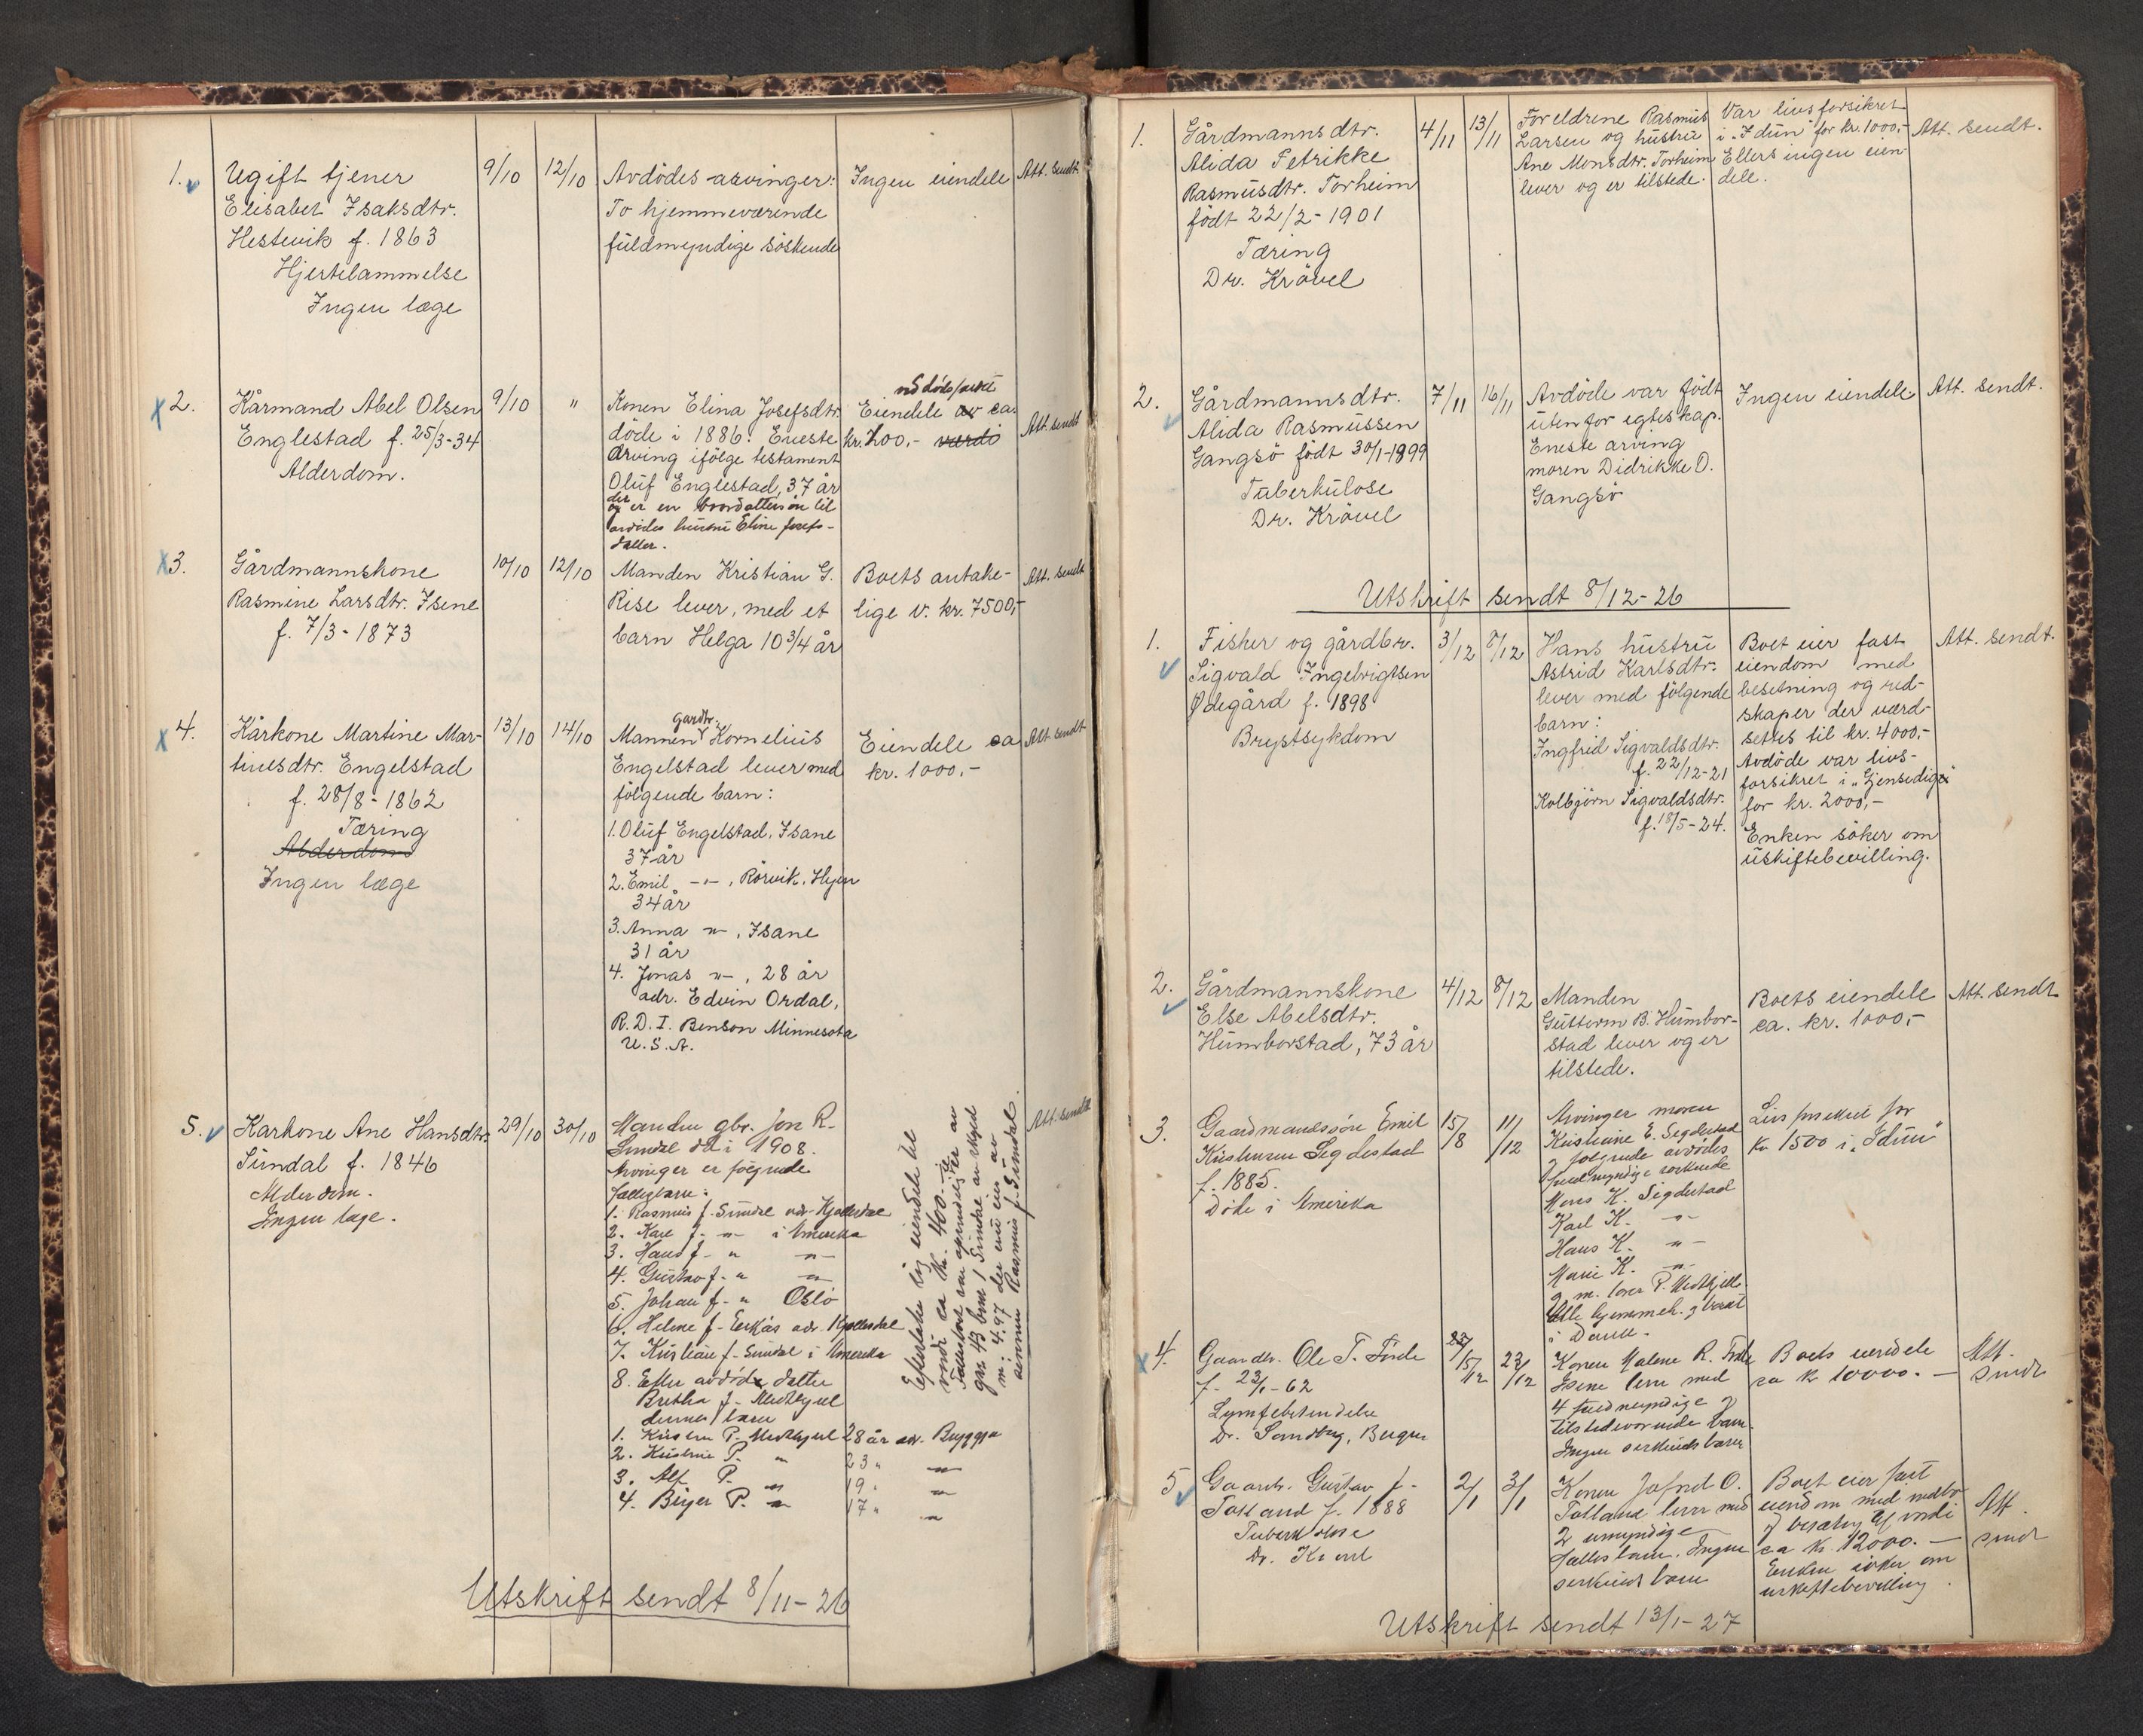 1.
Ugift tjener
Elisabet Isaksdtr.
Hestevik f. 1863
Hjertelammelse
Ingen læge
9/10
12/10
Avdödes arvinger:
To hjemmeværende
fuldmyndige söskende
Ingen eiendele
Att. sendt
2.
Kårmand Abel Olsen
Englestad f. 25/3-34
Alderdom.
9/10
"
Konen Elina Josefsdtr.
döde i 1886. Eneste
arving ifölge testament
Oluf Englestad, 37 år
der
er en
til
avdödes hustru Eline Josefs-
datter.
Eiendele ca.
kr. 200,- værdi
Att. sendt
3.
Gårdmannskone
Rasmine Larsdtr. Isene
f. 7/3-1873
10/10
12/10
Manden Kristian G.
Rise lever, med et
barn Helga 10 3/4 år
Boets antake-
lige v. kr. 7500,-
Att. sendt
4.
Kårkone Martine Mar-
tinesdtr. Engelstad
f. 28/8-1862
Tæring
Alderdom
Ingen læge
13/10
14/10
gardbr.
Mannen Kornelius
Engelstad lever med
fölgende barn:
1. Oluf Engelstad, Isane
37 år
2. Emil -"-, Rörvik, Hyen
34 år
3. Anna -"-, Isane
31 år
4. Jonas -"-, 28 år
adr. Edvin Ordal,
R.D.I. Benson Minnesota
U.S.A.
Eiendele ca
kr. 1000,-
Att. sendt
5.
Karkone Ane Hansdtr.
Sundal f. 1846
Alderdom.
Ingen læge.
29/10
30/10
Manden gbr. Jon R.
Sundal död i 1908.
Arvinger er fölgende
fællesbarn:
1. Rasmus J. Sundal adr. Hjalledal
2. Karl J. -"- i Amerika
3. Hans J. " -"-
4. Gustav J. " -"-
5. Johan J. " Oslo
6. Helene J. adr.
7. Kristian J. Sundal i Amerika
8. Efter avdöde datter
Bertha J.
dennes barn
1. P. 28 år adr. Bryggja
2. P. " 23 " -"-
3. Alf P. " 19 " -"-
4. Birger P. " 17 " -"-
Efterlatte sig eiendele til
værdi ca kr. 400.-
gnr. 43 bnr. 1 Sundal
4.97 der nu eies av
sönnen Rasmus J. Sundal.
Att. sendt
Utskrift sendt 8/11-26
1.
Gårdmannsdtr.
Alida Petrikke
Rasmusdtr. Torheim
födt 22/2-1901
Tæring
Dr. Krövel
4/11
13/11
Foreldrene Rasmus
Larsen og hustru
Ane Monsdtr. Torheim
lever og er tilstede.
Var livsforsikret
i "Idun" for kr. 1000,-
Ellers ingen eien-
dele.
Att. sendt.
2.
Gårdmannsdtr.
Alida Rasmussen
Gangsö födt 30/1-1899
Tuberkulose
Dr. Krövel
7/11
16/11
Avdöde var födt
utenfor egteskap.
Eneste arving
moren Didrikke O.
Gangsö
Ingen eiendele
Att. sendt.
Utskrift sendt 8/12-26
1.
Fisker og gårdbr.
Sigvald Ingebrigtsen
Ødegård f. 1898
Brystsykdom
3/12
7/12
Hans hustru
Astrid Karlsdtr.
lever med fölgende
barn:
Ingfrid Sigvaldsdtr.
f. 22/12-21
Kolbjörn Sigvaldsdtr.
f. 18/5-24.
Boet eier fast
eiendom med
besetning og red-
skaper der værd-
settes til kr. 4000,-
Avdöde var livs-
forsikret i "Gjensidige"
for kr. 2000,-
Enken söker om
uskiftebevilling.
Att. sendt.
2.
Gårdmannskone
Else Abelsdtr.
Humborstad, 73 år
4/12
8/12
Manden
Guttorm B. Humbor-
stad lever og er
tilstede.
Boets eiendele
ca. kr. 1000,-
Att. sendt
3.
Gaardmandssön Emil
Kristensen Segdestad
f. 1885.
Döde i Amerika
15/8
11/12
Arvinger moren
Kristiane E. Segdestad
og fölgende avdödes
fuldmyndige söskende
Mons K. Sigdestad
Karl K. -"-
Hans K. -"-
Marie K. -"-
g. m. P.
Alle hjemmeh. og bosat
i Davik.
Livsforsikret for
kr 1500 i "Idun"
4.
Gaardbr. Ole T. Förde
f. 23/1-62
Lymfebetendelse
Dr. Sandberg, Bergen
23/12
Konen Malene R.
Isene lever med
4 fuldmyndige og
tilstedeværende barn.
Ingen særkuldsbarn
Boets eiendele
ca kr 10000.-
Att.
sendt
5
Gaardbr. Gustav J.
Totland f. 1888
Tuberkulose
Dr. Krövel
2/1
3/1
Konen O.
Totland lever med
2 umyndige
fællesbarn. Ingen
særkuldsbarn
Boet eier fast
eiendom med
og besætn. af værdi
ca kr 12000.-
Enken söker om
uskiftebevilling.
Att.
sendt
Utskrift sendt 13/1-27